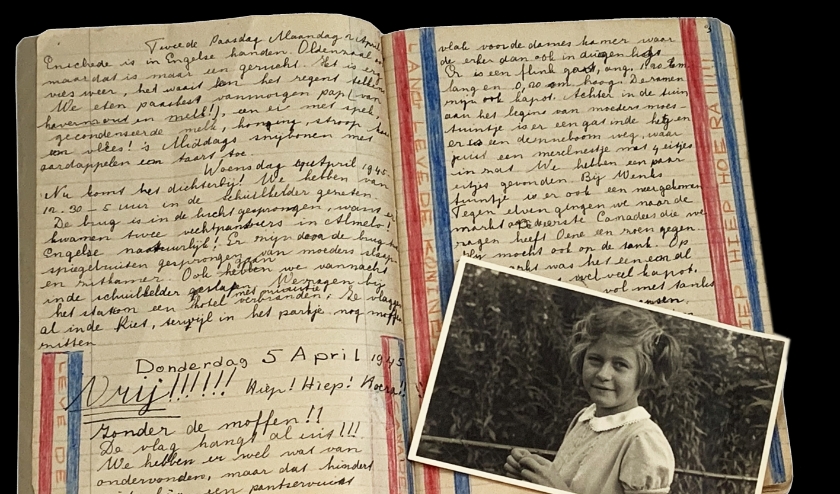 Tweede Paasdag Maandag 2 April
Enschede is in Engelse handen. Oldenzaal
maar dat is maar een gerucht. Het is erg
vies weer, het waait en het regent
We eten paasbest vanmorgen pap (van
havermout en melk!), een ei met spek,
gecondenseerde melk, honing, stroop
en vlees! 's Middags snijbonen met
aardappelen een taart toe.
Woensdag 4 April 1945.
Nu komt het dichterbij! We hebben van
12.30 - 5 uur in de schuilkelder gezeten.
De brug is in de lucht gesprongen, want er
kwamen twee vechtpantsers in Almelo!
Engelse natuurlijk! Er zijn door de brug
spiegelruiten gesprongen van moeders slaap-
en zitkamer. Ook hebben we vannacht
in de schuilkelder geslapen. We zagen bij
het station een hotel verbranden, De vlag
al in de Riet, terwijl in het parkje nog moffen
zitten
Donderdag 5 April 1945
Vrij!!!!!! Hiep! Hiep! Hoera!!
Zonder de moffen!!
De vlag hangt al uit!!!
We hebben er wel wat van
ondervonden, maar dat hindert
een pantservuist
LEVE DE
3
vlak voor de dames kamer waar
de erker dan ook in duigen ligt
Er is een flink gat, ong. 1.20
lang en 0,80 cm. hoog. De ramen
zijn ook kapot. Achter in de tuin
aan het begin van moeders moes-
tuintje is er een gat in de heg en
er is een denneboom weg, waar
juist een merelnestje met 4 eitjes
in zat. We hebben een paar
eitjes gevonden Bij Wenks
tuintje is er ook een neergekomen
Tegen elven gingen we naar de
markt De eerste Canadees die we
zagen heeft Oene een zoen gegeven
Zij mocht ook op de tank. Op
was het een en al
veel kapot.
vol met tanks
LAND! LEVE DE KONINGIN
HIEP HIEP HOERA!!!!